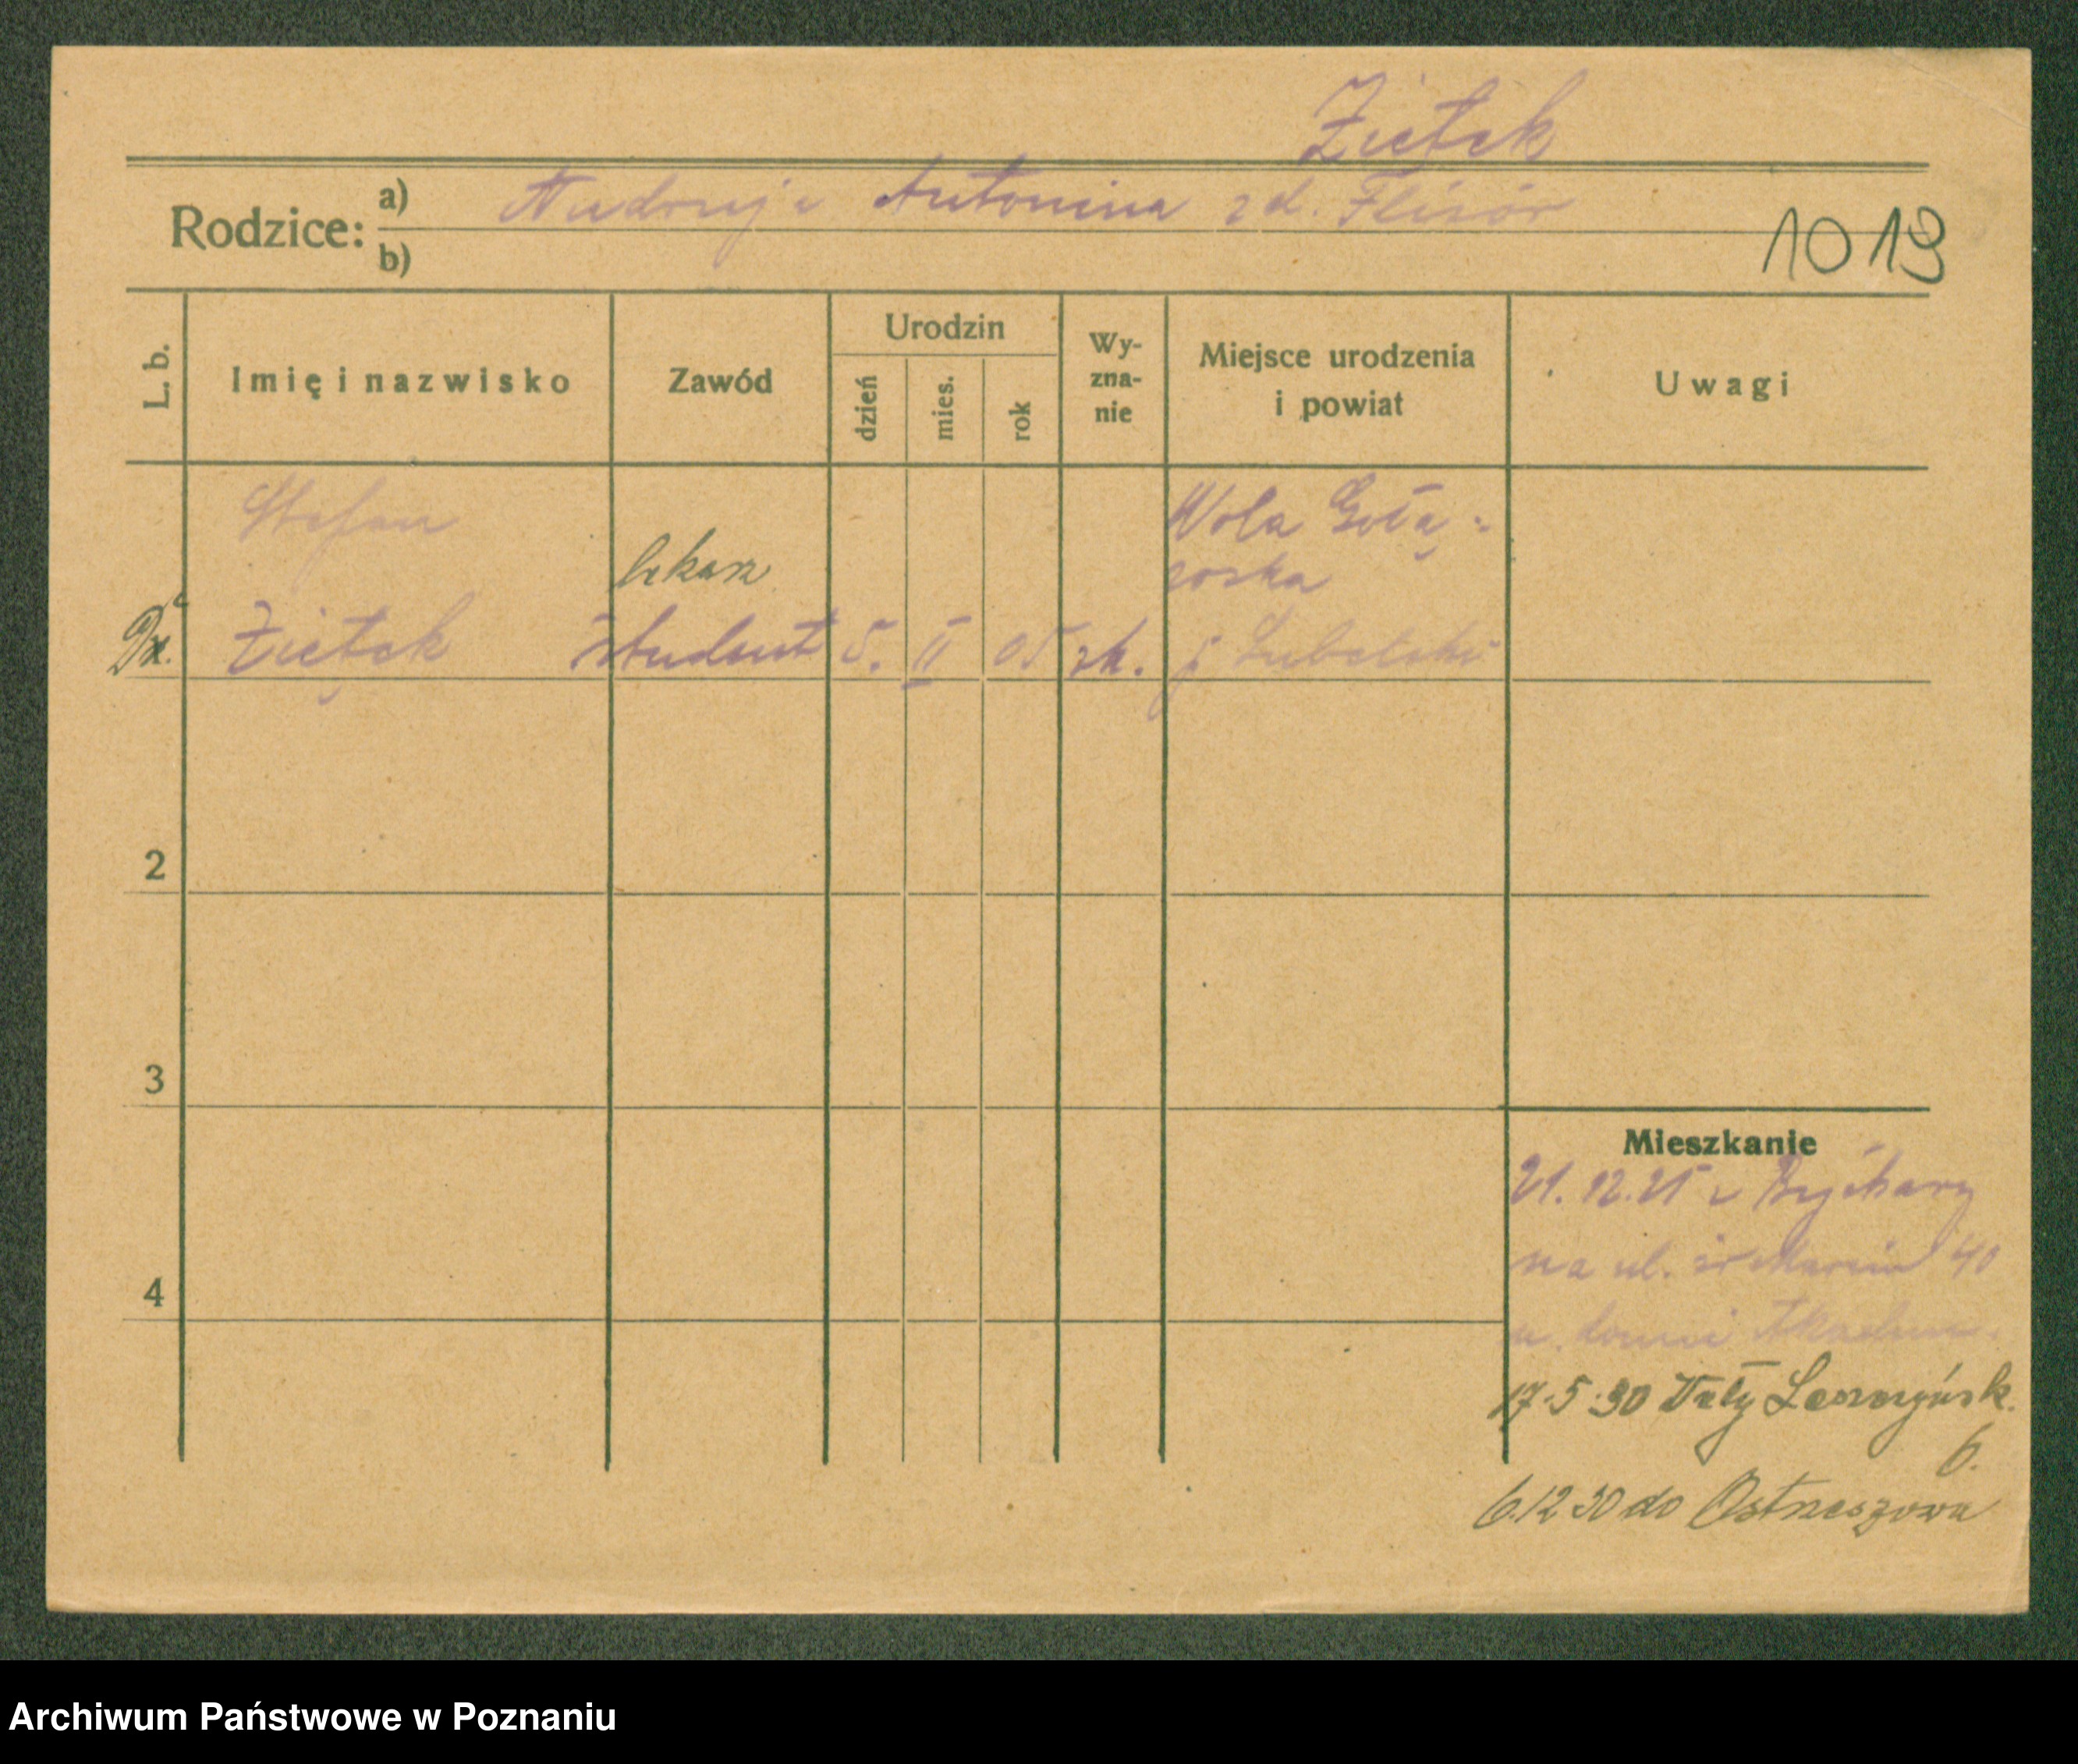 Ziętek
Rodzice: a) Andrzej i Antonina zd. Flisów
b)
1019
L. b.
Imię i nazwisko
Zawód
Urodzin
dzień
mies.
rok
Wy-
zna-
nie
Miejsce urodzenia
i powiat
Uwagi
Stefan
Wola Gołę-
lekarz
Dr. Ziętek student 5. II 05 rk. p Lubelski
2
3
4
Mieszkanie
21.12.25 z
na ul. św Marcin 40
w domu Akadem.
17.5.30 Wały Leszczyńsk.
6.
6.12 30 do Ostrzeszowa
Archiwum Państwowe w Poznaniu